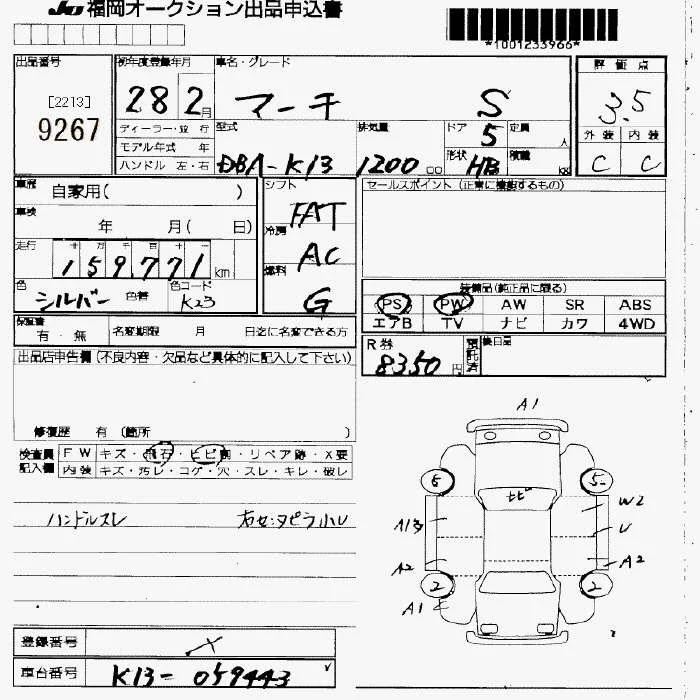 JU 福岡オークション出品申込書
*1001233966*
出品番号 [2213] 9267
初年度登録年月 28 2月
車名・グレード マーチ S
評価点 3.5
外装 C 内装 C
ディーラー・並行
モデル年式 年
ハンドル 左・右
型式 DBA-K13
排気量 1200 cc
ドア 5 定員 人
形状 HB 積載 kg
車歴 自家用( )
車検 年 月( 日)
走行 十 万 千 百 十 一
159,771 km
色 シルバー 色替 色コード K23
シフト FAT
冷房 AC
燃料 G
セールスポイント (正常に機能するもの)
装備品(純正品に限る)
PS PW AW SR ABS
エアB TV ナビ カワ 4WD
保証書 有・無 名変期限 月 日迄に名変できる方
R券 8350 円 預託済 後日品
出品店申告欄 (不良内容・欠品など具体的に記入して下さい)
修復歴 有 (箇所 )
検査員記入欄
FW キズ・飛石・ヒビ割・リペア跡・X要
内装 キズ・汚レ・コゲ・穴・スレ・キレ・破レ
ハンドルスレ
A1
6 5
ヒビ
A13 W2
U
A2 A2
2 2
A1
登録番号
車台番号 K13-059443